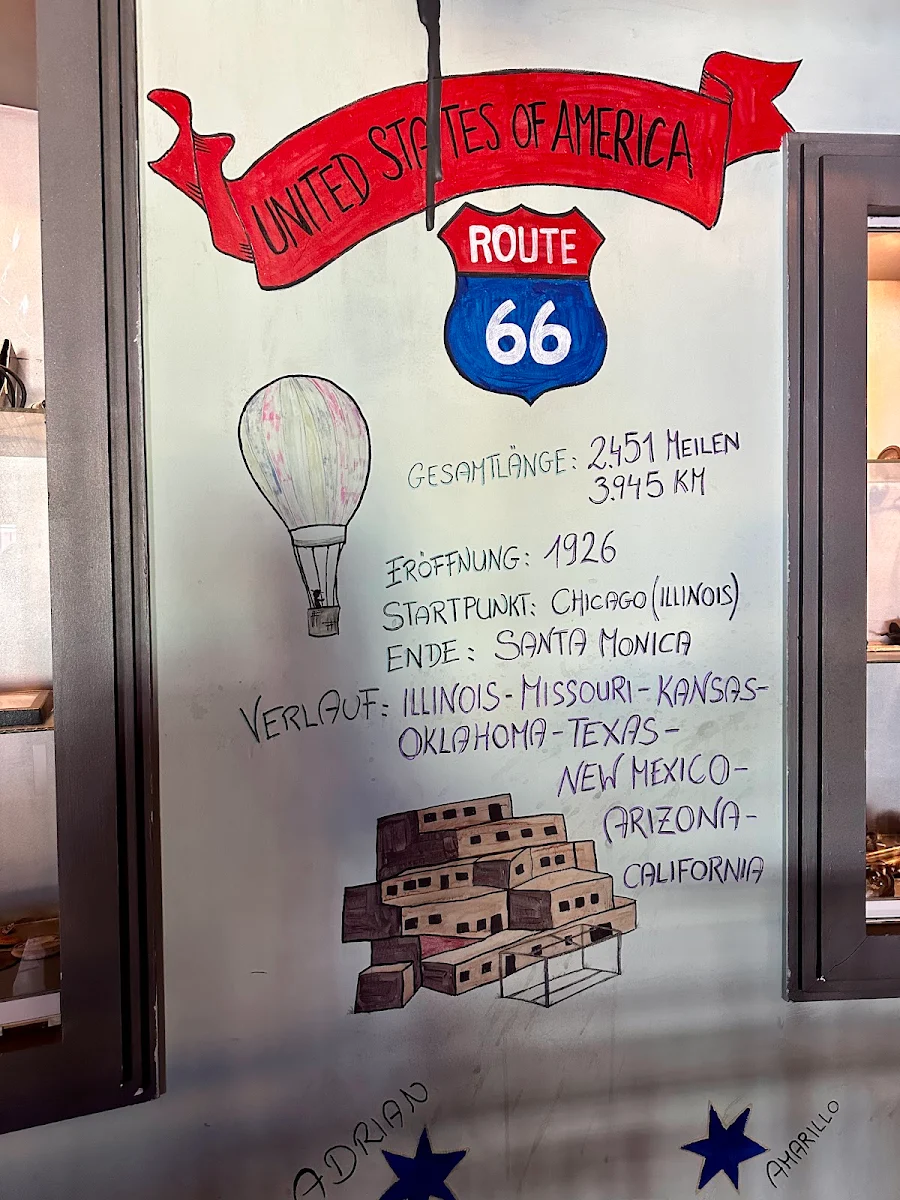 UNITED STATES OF AMERICA
ROUTE
66
GESAMTLÄNGE: 2.451 MEILEN
3.945 KM
ERÖFFNUNG: 1926
STARTPUNKT: CHICAGO (ILLINOIS)
ENDE: SANTA MONICA
VERLAUF: ILLINOIS - MISSOURI - KANSAS-
OKLAHOMA - TEXAS -
NEW MEXICO -
ARIZONA -
CALIFORNIA
ADRIAN
AMARILLO